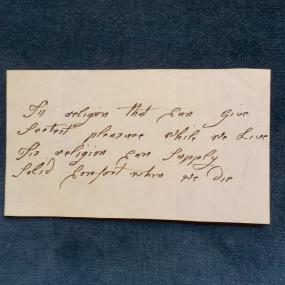 Tis religion that Can Give
Sweetest pleasure While we Live
Tis religion Can Supply
Solid Comfort when we Die